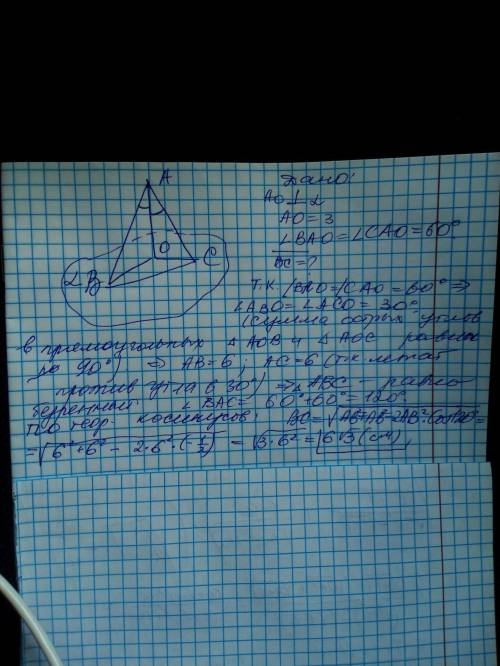 A
O
C
B
α
Дано:
AO ⊥ α
AO = 3
∠BAO = ∠CAO = 60°
BC = ?
Т.к. ∠BAO = ∠CAO = 60° ⇒
∠ABO = ∠ACO = 30°
(сумма острых углов
в прямоугольных △ AOB и △ AOC равны
до 90°) ⇒ AB = 6; AC = 6 (т.к. лежат
против угла в 30°) ⇒ △ABC – равно
бедренный. ∠BAC = 60° + 60° = 120°
По теор. косинусов: BC = √AB²+AB²-2AB²·cos120° =
= √6²+6² - 2·6²·(-1/2) = √3·6² = 6√3 (см)